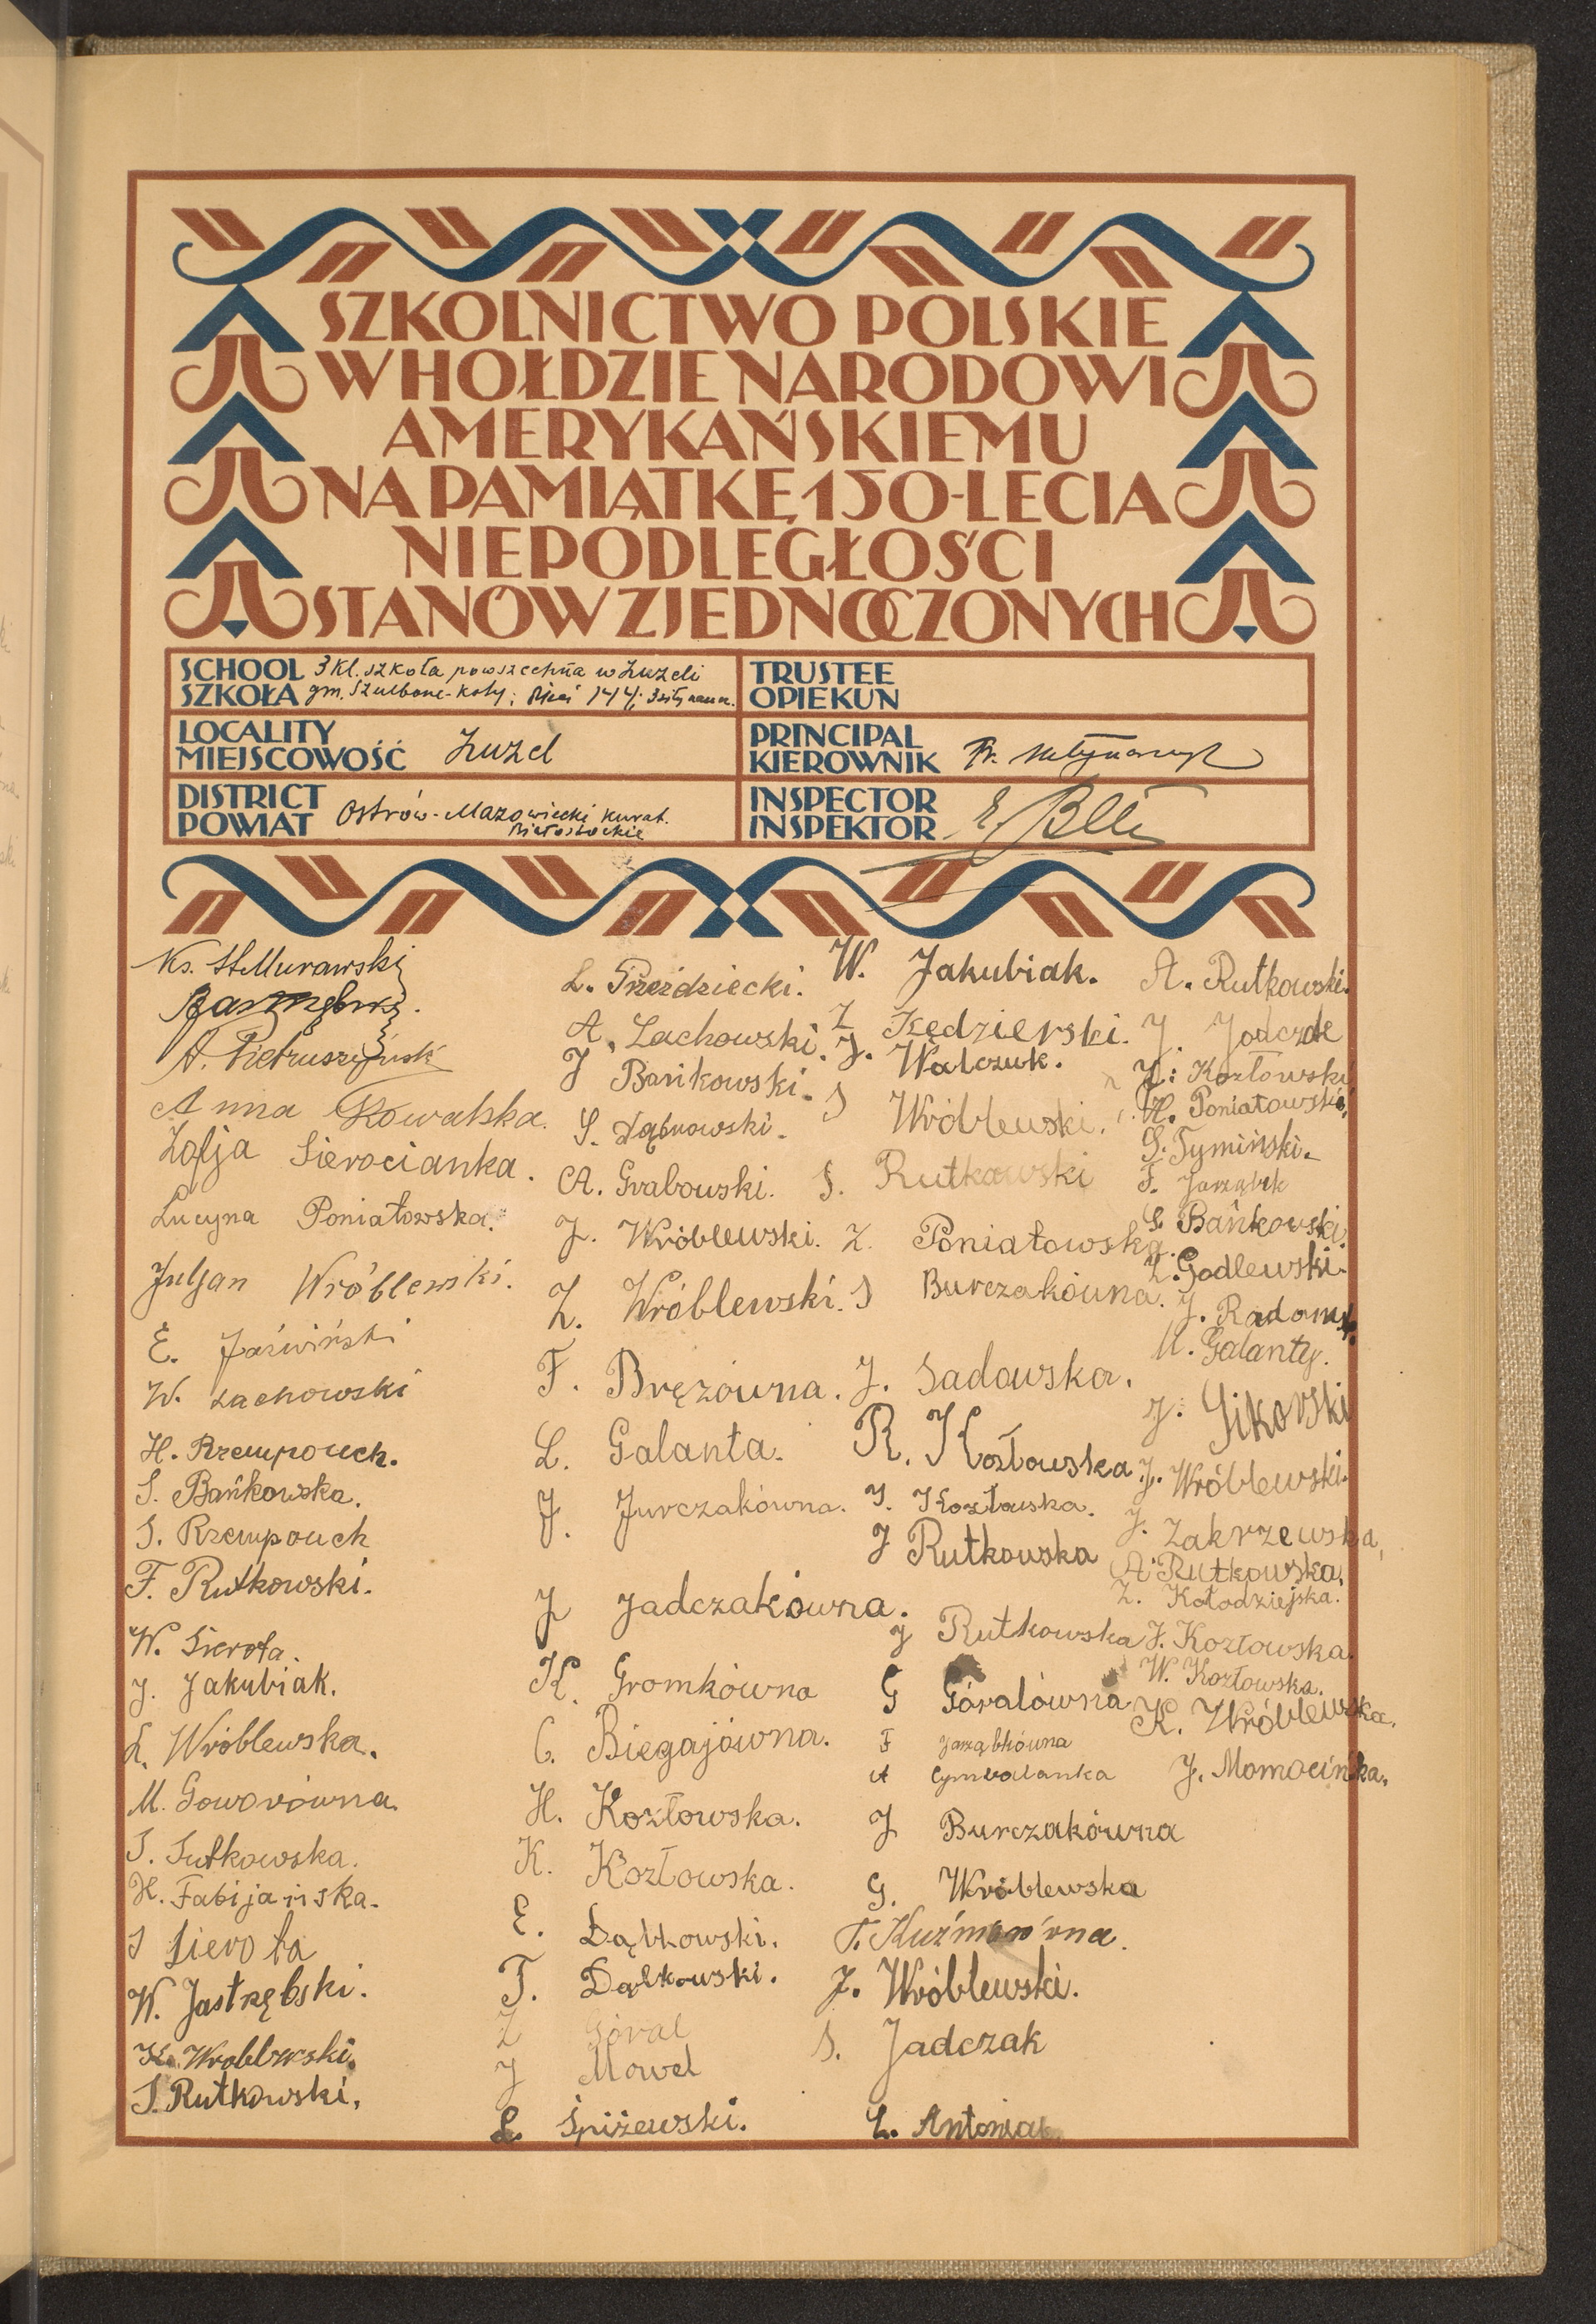 SZKOLNICTWO POLSKIE
W HOŁDZIE NARODOWI
AMERYKAŃSKIEMU
NA PAMIĄTKĘ 150-LECIA
NIEPODLEGŁOŚCI
STANÓW ZJEDNOCZONYCH
SCHOOL
SZKOŁA
3 kl. szkoła powszechna w Zuzeli
gm. Szulborze-Koty;
LOCALITY
MIEJSCOWOŚĆ
Zuzel
DISTRICT
POWIAT
Ostrów-Mazowiecki kurat.
Białostockie
TRUSTEE
OPIEKUN
PRINCIPAL
KIEROWNIK
INSPECTOR
INSPEKTOR
Ks. St Murawski
A. Pietruszyński
Anna Kowalska.
Zofja Sierocianka.
Lucyna Poniatowska.
Juljan Wróblewski.
E. Jaźwiński
W. Lachowski
H. Rzempołuch.
S. Bańkowska.
S. Rzempołuch
F. Rutkowski.
W. Sierota.
J. Jakubiak.
L. Wróblewska.
M. Goworówna.
S. Sutkowska.
H. Fabijańska.
S Sierota
W. Jastrzębski.
K. Wroblewski.
S. Rutkowski.
L. Przeździecki.
A. Lachowski.
J Bańkowski.
S. Dąbrowski.
A. Grabowski.
J. Wróblewski.
Z. Wróblewski.
F. Bręzówna.
L. Galanta.
J. Jurczakówna.
J Jadczakówna.
K. Gromkówna
C. Biegajówna.
H. Kozłowska.
K. Kozłowska.
E. Dąbkowski.
T. Dąbkowski.
Z Góral
J Mowel
L. Śpiżewski.
W. Jakubiak.
Z Kędzierski.
J. Walczuk.
S Wróblewski.
S. Rutkowski
Z. Poniatowska.
S Burczakówna.
J. Sadowska.
R. Kozłowska
J. Kozłowska.
J Rutkowska
J Rutkowska
G Góralówna
F Jarząbkówna
A Cymbalanka
J Burczakówna
G. Wróblewska
T. Kuźmówna.
J. Wróblewski.
S. Jadczak
L. Antoniak
A. Rutkowski.
J. Jadczak
Z. Kozłowski
H. Poniatowski,
S. Tymiński.
F. Jarząbek
S Bańkowski
Z. Godlewski.
J. Radomski.
M. Galanty.
J. Sikorski
J. Wróblewski.
J. Zakrzewska,
A. Rutkowska,
Z. Kołodziejska.
J. Kozłowska.
W. Kozłowska.
K. Wróblewska.
J. Momocińka.